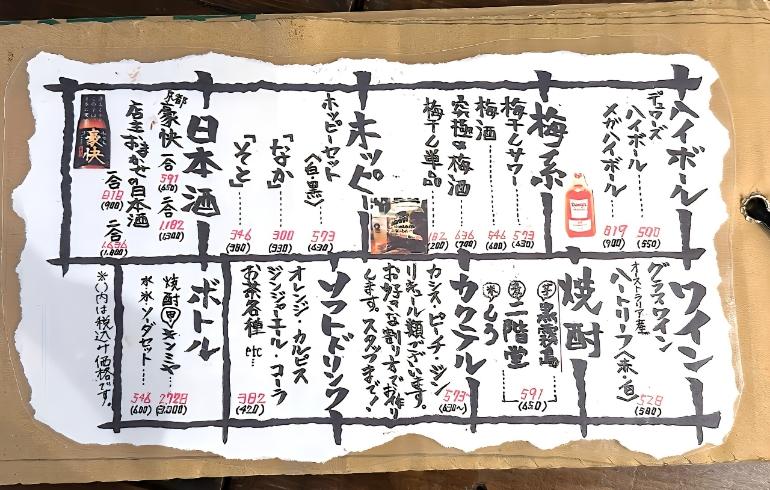 ハイボール
デュワーズ
ハイボール…… 500 (550)
メガハイボール 819 (900)
梅系
梅干しサワー…… 573 (630)
梅酒…… 546 (600)
究極の梅酒 636 (700)
梅干し単品 182 (200)
ホッピー
ホッピーセット
(白・黒) 573 (630)
「なか」 300 (330)
「そと」 346 (380)
日本酒
京都
豪快 一合 591 (650) 二合 1,182 (1,300)
店主おまかせの日本酒
一合 818 (900) 二合 1,636 (1,800)
豪快
ワイン
グラスワイン
オーストラリア産
ハートリーフ(赤・白) 528 (580)
焼酎
芋 黒霧島
麦 二階堂
米 しろ
591 (650)
カクテル
カシス・ピーチ・ジン 573〜 (630〜)
リキュール類がございます。
お好きな割り方でお作り
します。スタッフまで!
ソフトドリンク
オレンジ・カルピス
ジンジャーエール・コーラ
お茶各種 etc…
382 (420)
ボトル
焼酎 甲 キンミヤ… 2,728 (3,000)
水・氷・ソーダセット…… 546 (600)
※( )内は税込み価格です。